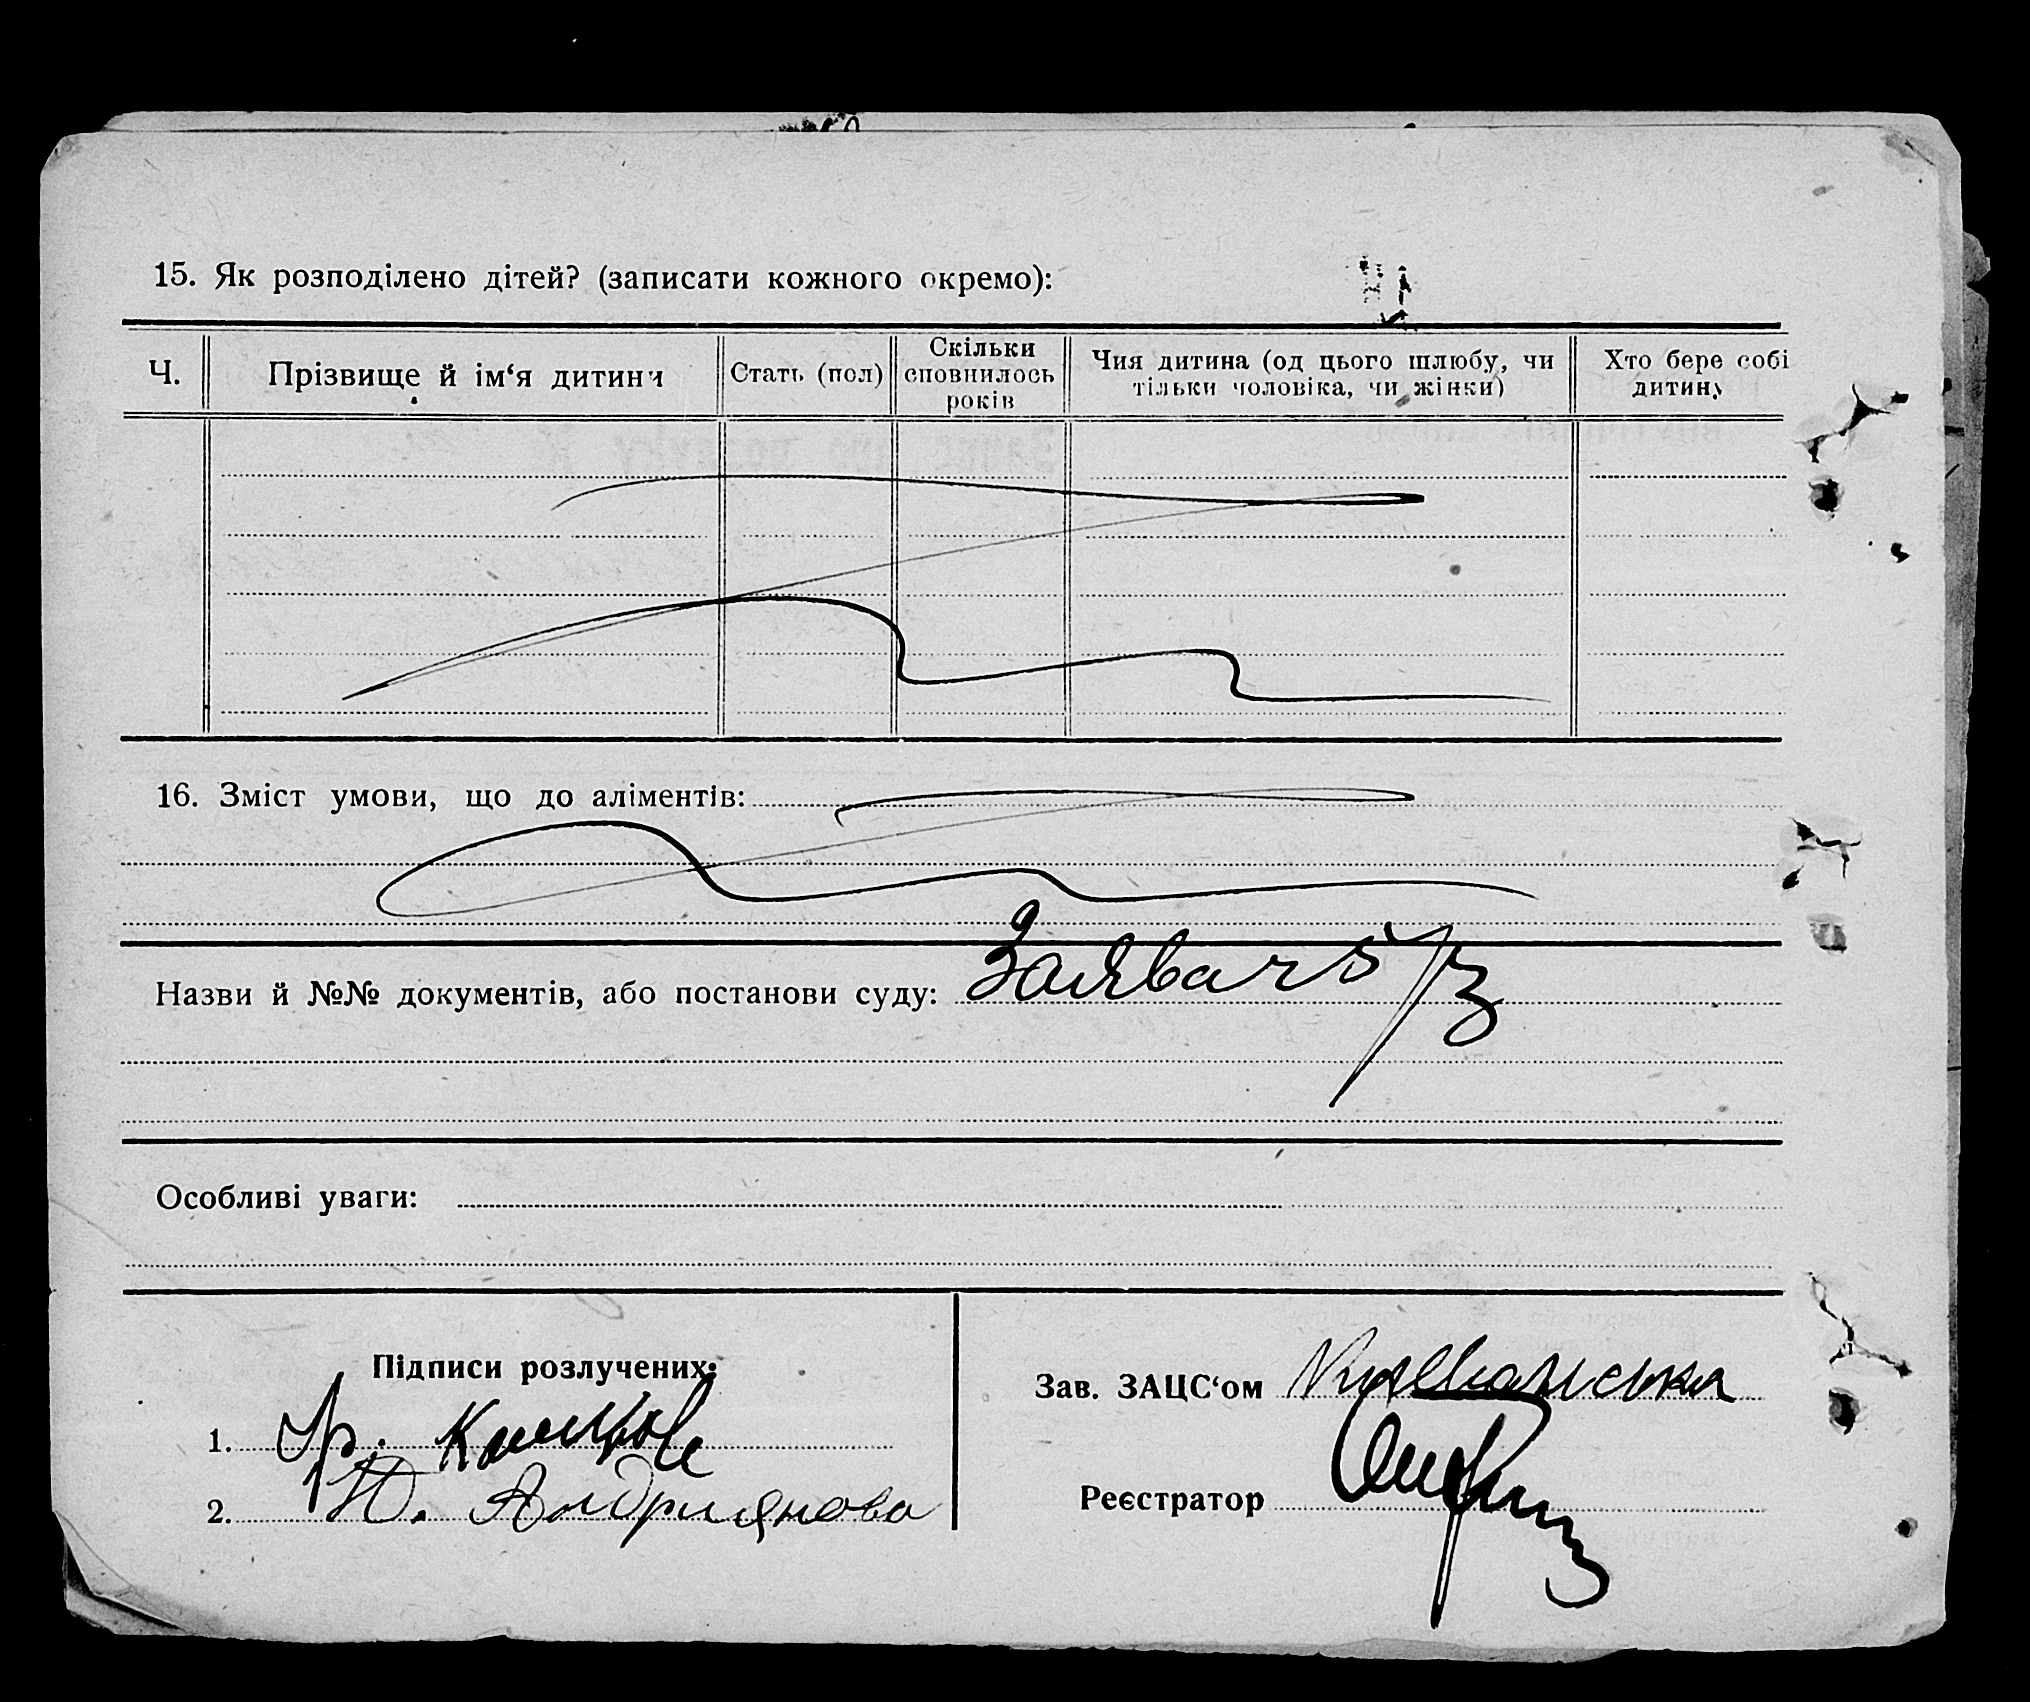 15. Як розподілено дітей? (записати кожного окремо):
Ч.
Прізвище й ім‘я дитини
Стать (пол)
Скільки
сповнилось
років
Чия дитина (од цього шлюбу, чи
тільки чоловіка, чи жінки)
Хто бере собі
дитину
16. Зміст умови, що до аліментів:
Назви й №№ документів, або постанови суду: Заява ч 5/3
Особливі уваги:
Підписи розлучених:
1. Гр.
2. Ю. Андриянова
Зав. ЗАЦС‘ом
Реєстратор